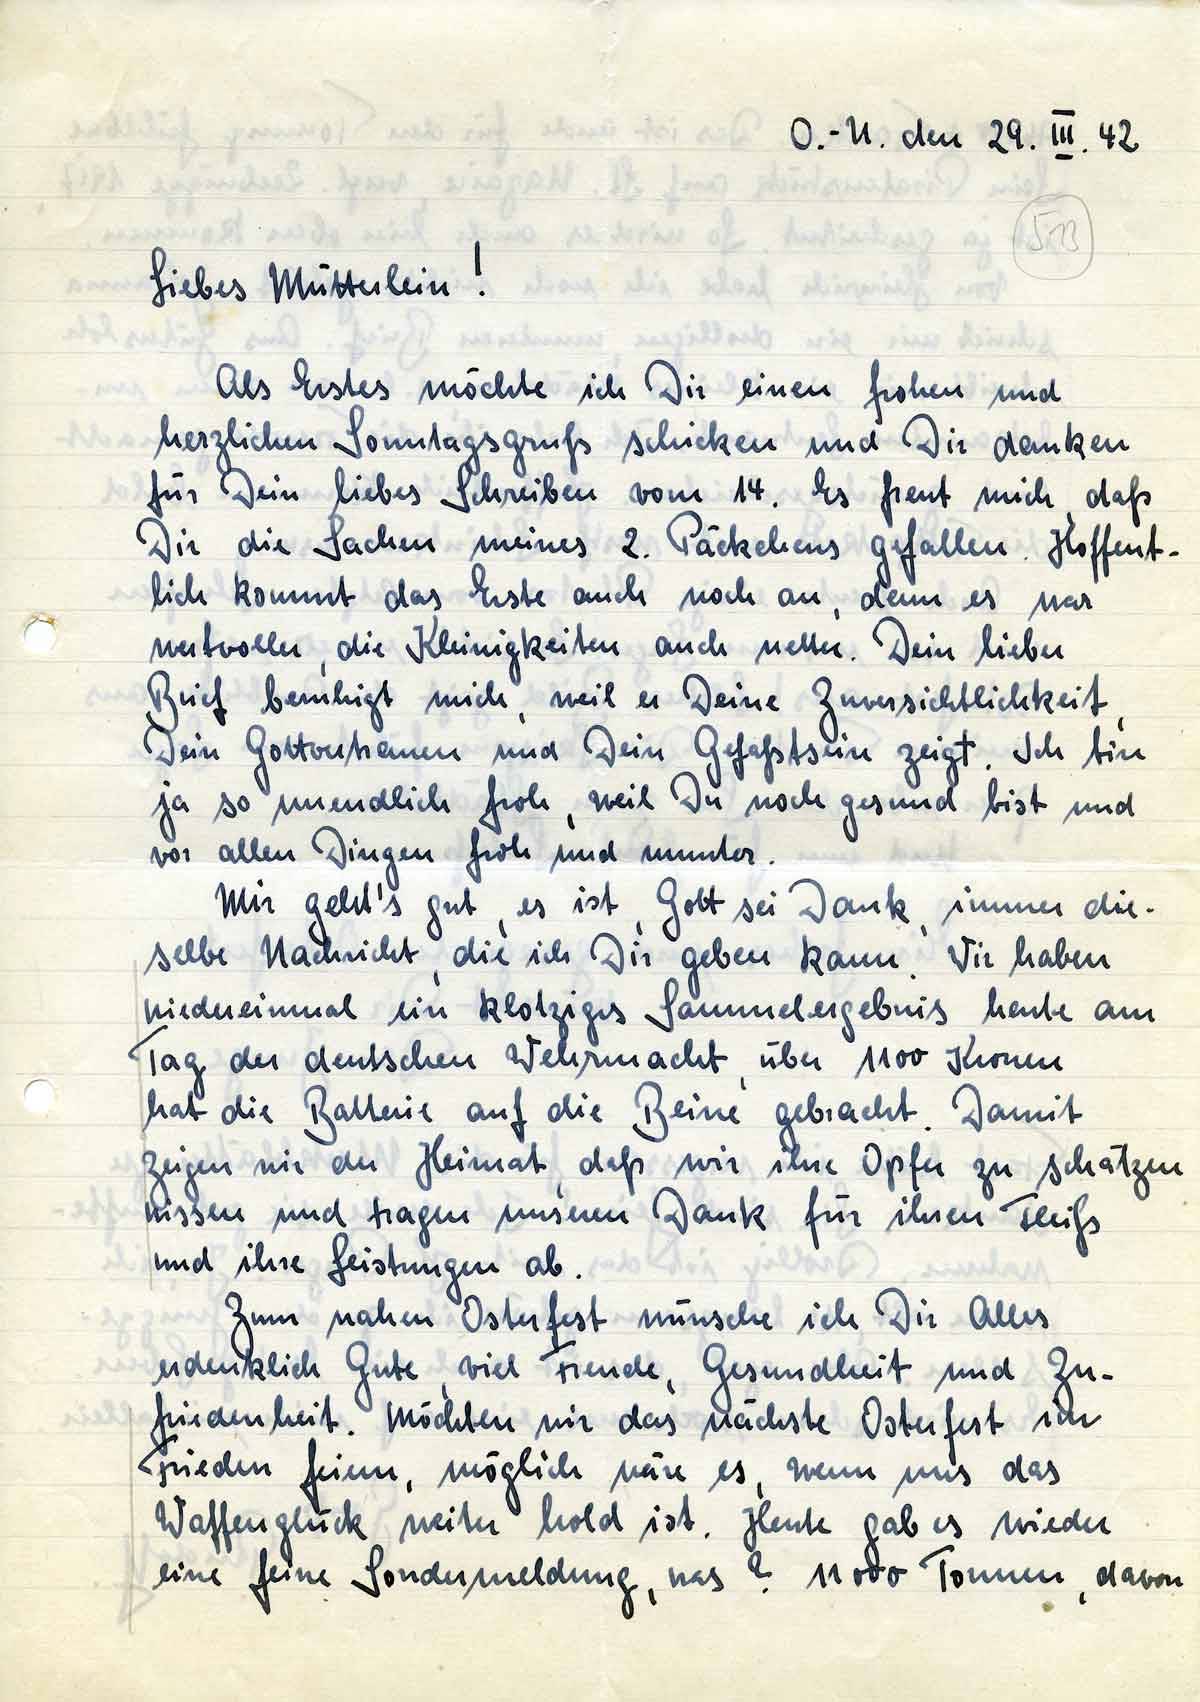 O.-U. den 29. III. 42
513
Liebes Mütterlein!
Als Erstes möchte ich Dir einen frohen und
herzlichen Sonntagsgruß schicken und Dir danken
für Dein liebes Schreiben vom 14. Es freut mich, daß
Dir die Sachen meines 2. Päckchens gefallen. Hoffent-
lich kommt das Erste auch noch an, denn es war
wertvoller, die Kleinigkeiten auch netter. Dein lieber
Brief beruhigt mich, weil er Deine Zuversichtlichkeit,
Dein Gottvertrauen und Dein Gefaßtsein zeigt. Ich bin
ja so unendlich froh, weil Du noch gesund bist und
vor allen Dingen froh und munter.
Mir geht's gut, es ist, Gott sei Dank, immer die-
selbe Nachricht, die ich Dir geben kann. Wir haben
wiedereinmal ein klotziges Sammelergebnis heute am
Tag der deutschen Wehrmacht, über 1100 Kronen
hat die Batterie auf die Beine gebracht. Damit
zeigen wir der Heimat, daß wir ihre Opfer zu schätzen
wissen und tragen unseren Dank für ihren Fleiß
und ihre Leistungen ab.
Zum nahen Osterfest wünsche ich Dir Alles
erdenklich Gute, viel Freude, Gesundheit und Zu-
friedenheit. Möchten wir das nächste Osterfest im
Frieden feiern, möglich wäre es, wenn uns das
Waffenglück weiter hold ist. Heute gab es wieder
eine feine Sondermeldung, was? 11 000 Tonnen, davon